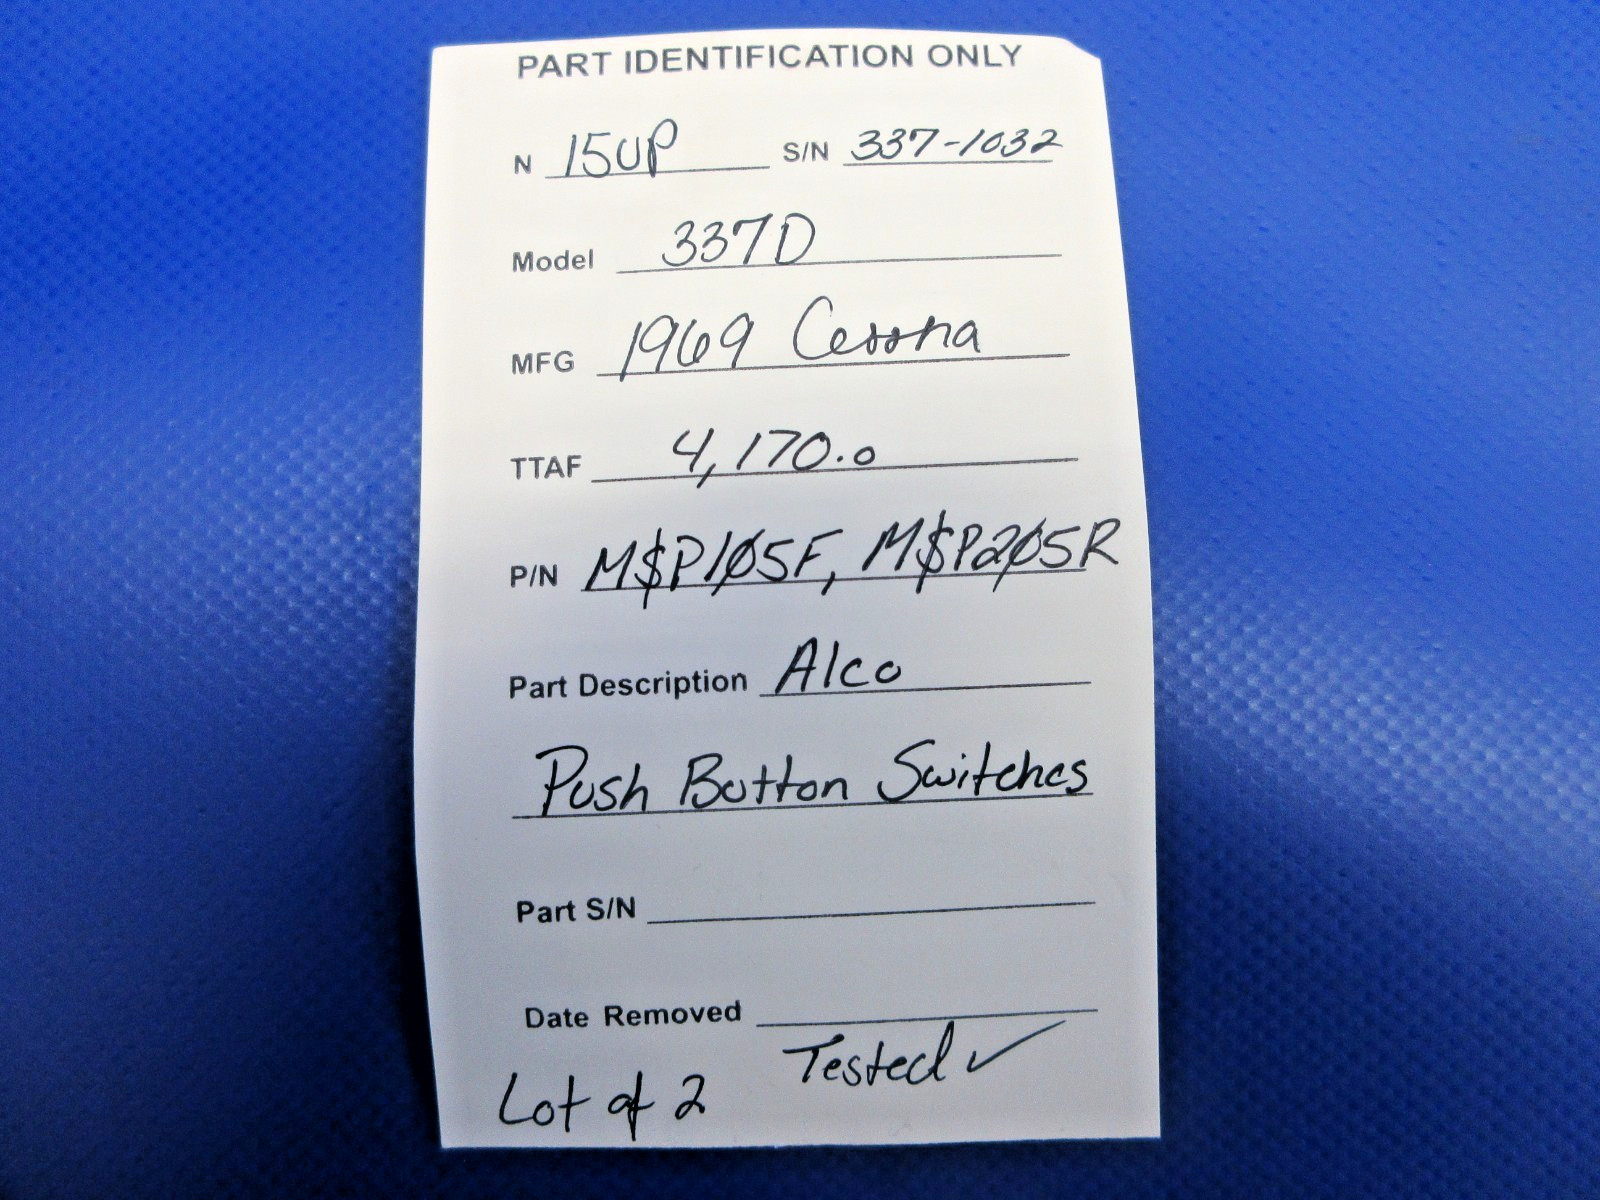 PART IDENTIFICATION ONLY
N 15UP S/N 337-1032
Model 337D
MFG 1969 Cessna
TTAF 4,170.0
P/N M$P1Ø5F, M$P2Ø5R
Part Description Alco
Push Button Switches
Part S/N
Date Removed
Tested ✓
Lot of 2